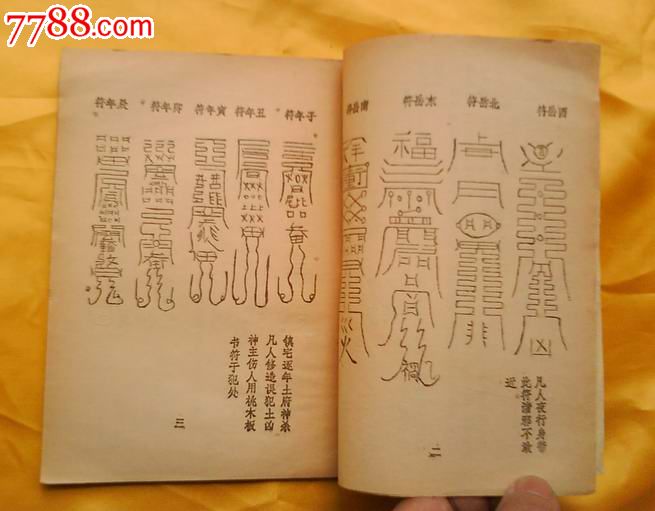 7788.com
西岳符
北岳符
东岳符
南岳符
凡人夜行身带
此符诸邪不敢
近
二
子年符
丑年符
寅年符
卯年符
辰年符
镇宅逐年土府神杀
凡人修造误犯土凶
神主伤人用桃木板
书符于犯处
三